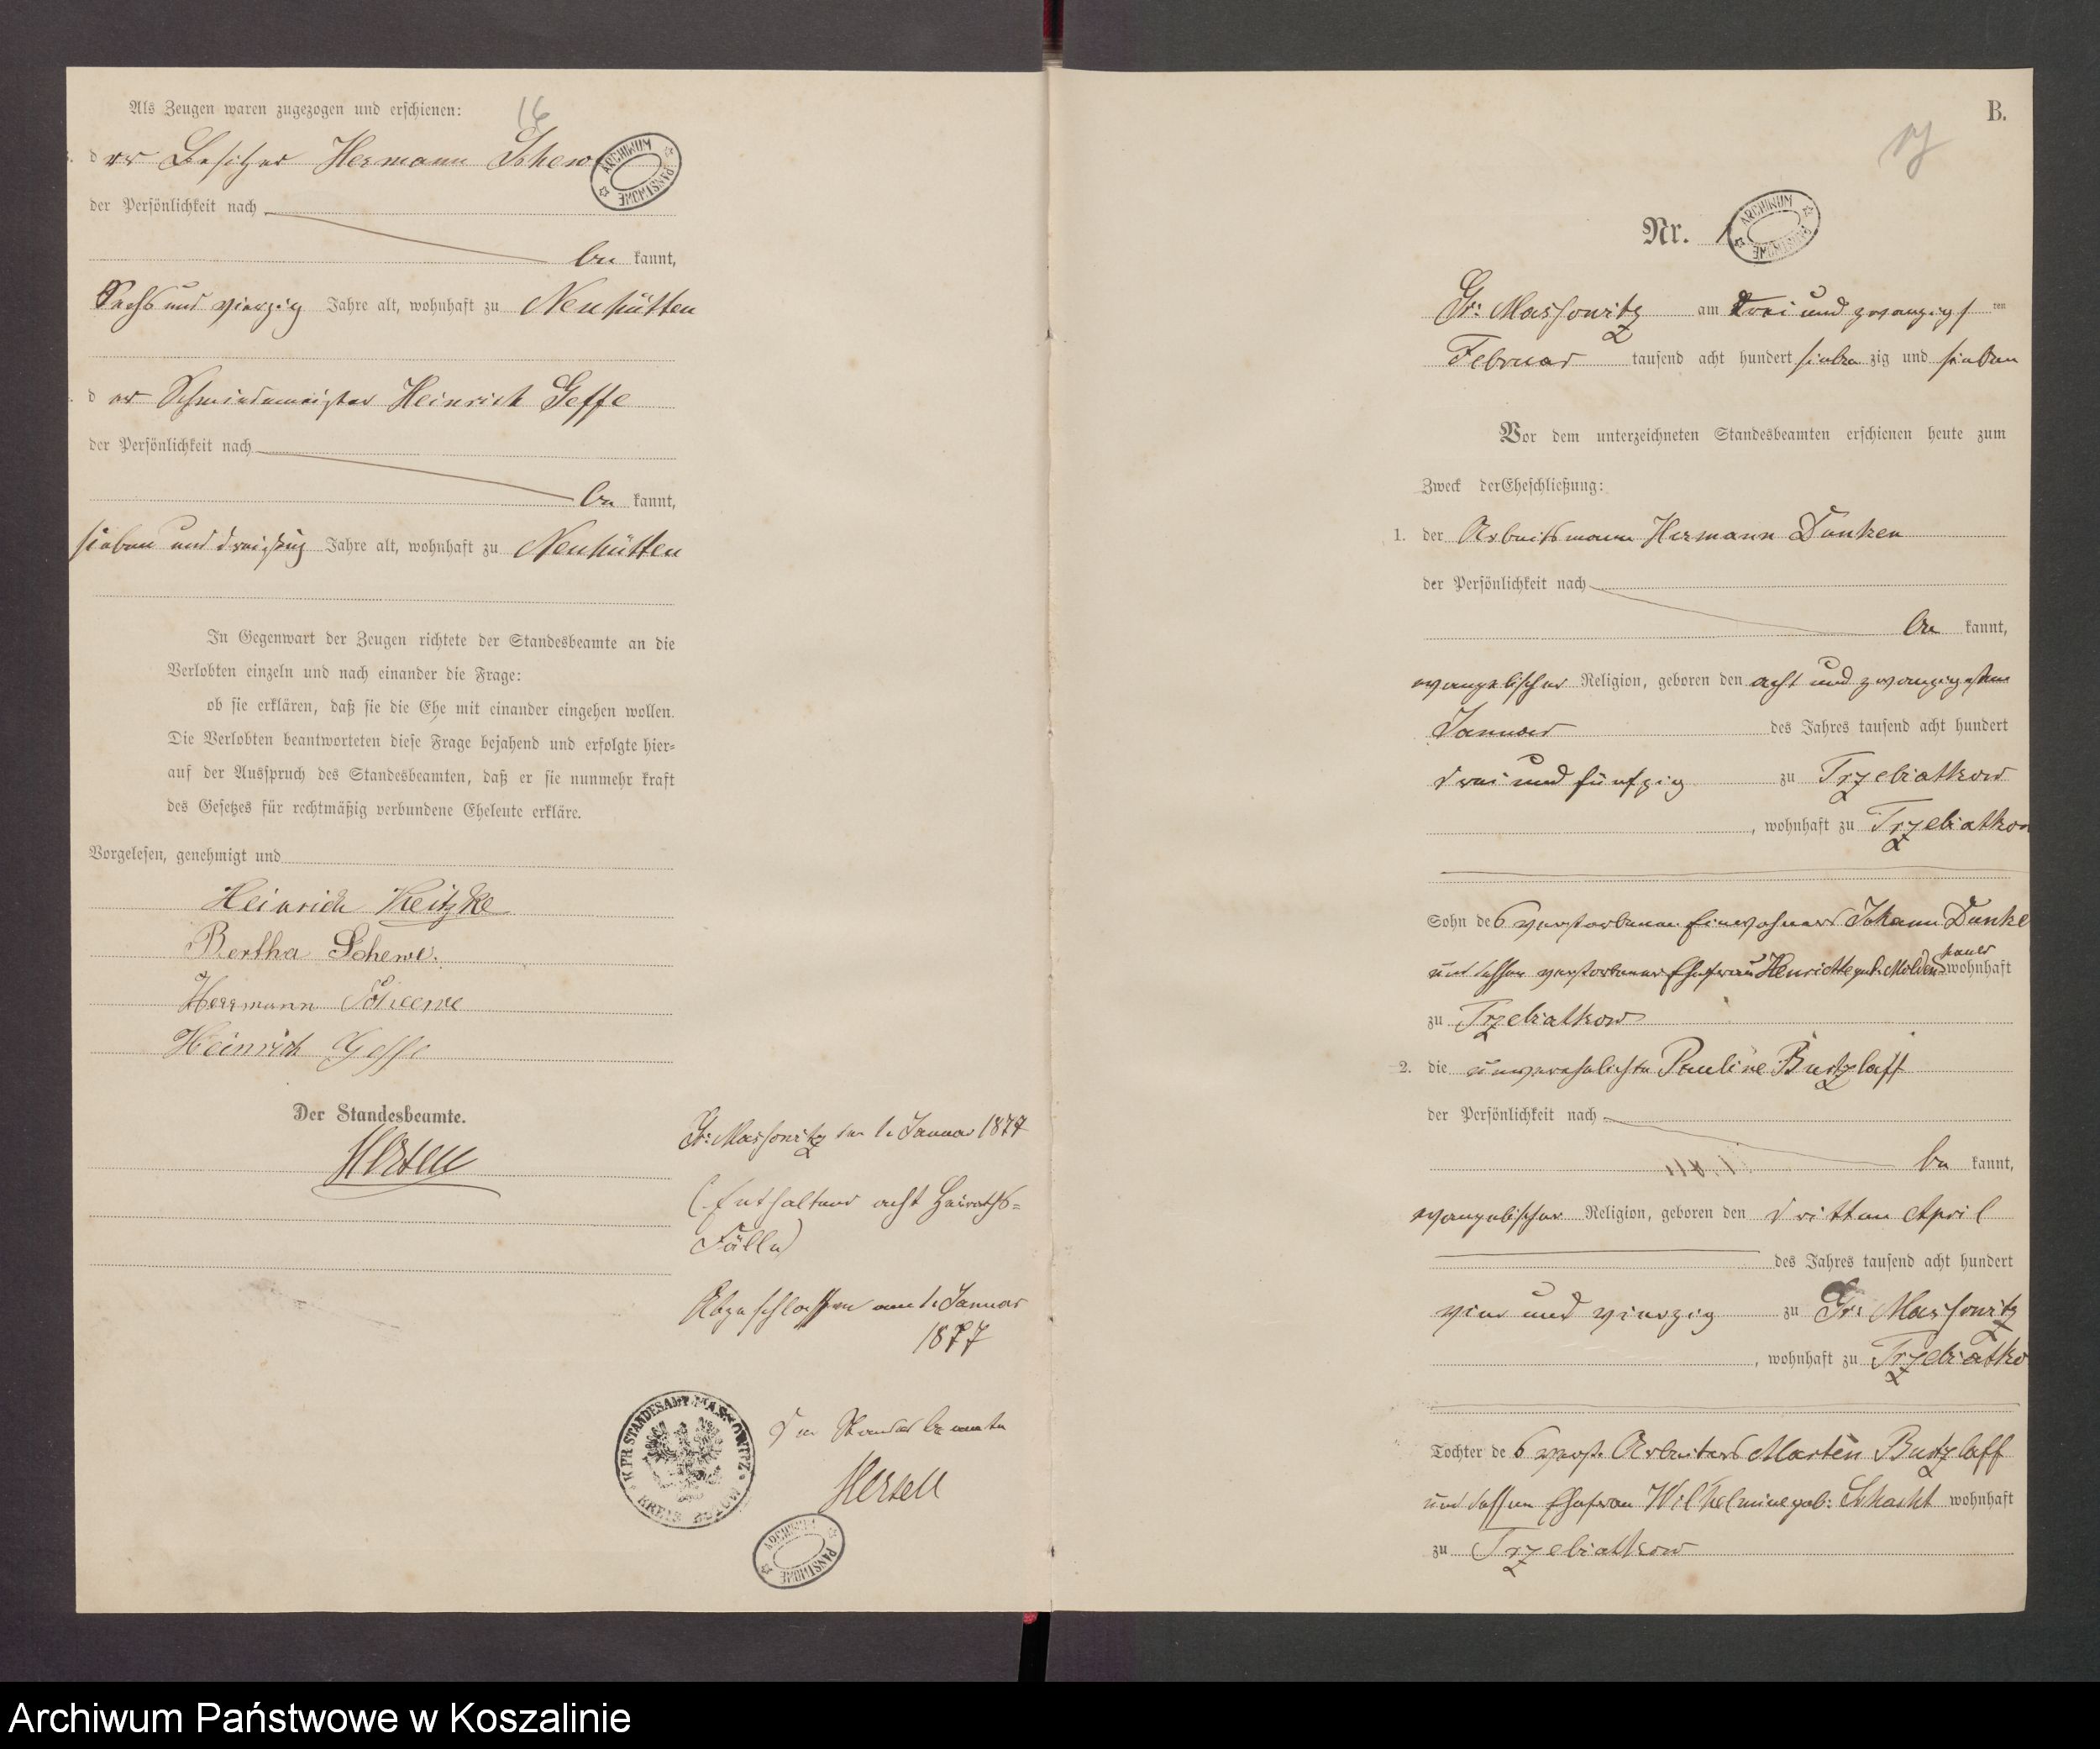 16
Als Zeugen waren zugezogen und erschienen:
der Besitzer Hermann Schew
ARCHIWUM PAŃSTWOWE
der Persönlichkeit nach
be kannt,
Sechs und vierzig Jahre alt, wohnhaft zu Neuhütten
der Schmiedemeister Heinrich Geffe
der Persönlichkeit nach
be kannt,
sieben und dreißig Jahre alt, wohnhaft zu Neuhütten
In Gegenwart der Zeugen richtete der Standesbeamte an die
Verlobten einzeln und nach einander die Frage:
ob sie erklären, daß sie die Ehe mit einander eingehen wollen.
Die Verlobten beantworteten diese Frage bejahend und erfolgte hier=
auf der Ausspruch des Standesbeamten, daß er sie nunmehr kraft
des Gesetzes für rechtmäßig verbundene Eheleute erkläre.
Vorgelesen, genehmigt und
Heinrich Keitzke
Bertha Schewe.
Herrmann Scheewe
Heinrich Geffe
Der Standesbeamte.
Hertell
Gr: Massowitz den 1. Januar 1877
(Enthaltend acht Heiraths=
Fälle)
Abgeschlossen am 1. Januar
1877
K. PR. STANDESAMT MASSOWITZ
KREIS BÜTOW
Der Standesbeamte
Hertell
ARCHIWUM PAŃSTWOWE
B.
17
Nr. 1
ARCHIWUM PAŃSTWOWE
Gr: Massowitz am drei und zwanzigsten
Februar tausend acht hundert sieben zig und sieben
Vor dem unterzeichneten Standesbeamten erschienen heute zum
Zweck der Eheschließung:
1. der Arbeitsmann Hermann Dunken
der Persönlichkeit nach
be kannt,
evangelischer Religion, geboren den acht und zwanzigsten
Januar des Jahres tausend acht hundert
drei und fünfzig zu Trzebiatkow
, wohnhaft zu Trzebiatkow
Sohn des verstorbenen Einwohners Johann Dunke
und dessen verstorbener Ehefrau Henriette geb. Moldenhauer wohnhaft
zu Trzebiatkow
2. die unverehelichte Pauline Butzlaff
der Persönlichkeit nach
be kannt,
evangelischer Religion, geboren den dritten April
des Jahres tausend acht hundert
vier und vierzig zu Gr: Massowitz
, wohnhaft zu Trzebiatko
Tochter des verst. Arbeiters Martin Butzlaff
und dessen Ehefrau Wilhelmine geb: Schacht wohnhaft
zu Trzebiatkow
Archiwum Państwowe w Koszalinie